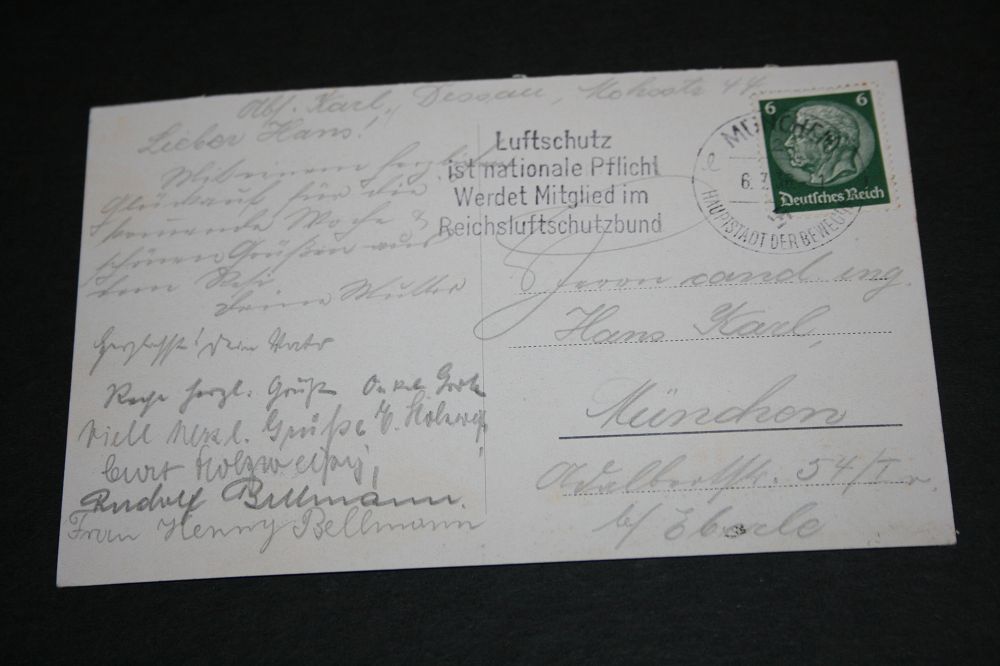 Abs. Karl, Dessau,
Lieber Hans!
Mit einem herzlichen
Glückauf für die
kommende Woche &
schönen Grüßen aus
dem
Deine Mutter
Herzlichst! Dein Vater
Recht herzl. Grüße Onkel
Viele herzl. Grüße
Curt
Rudolf Bellmann.
Frau Henny Bellmann
Luftschutz
ist nationale Pflicht
Werdet Mitglied im
Reichsluftschutzbund
MÜNCHEN
6.
HAUPTSTADT DER BEWEGUNG
6 6
Deutsches Reich
Herrn cand. ing.
Hans Karl,
München
Adalbertstr. 54/I r.
b/ Eberle